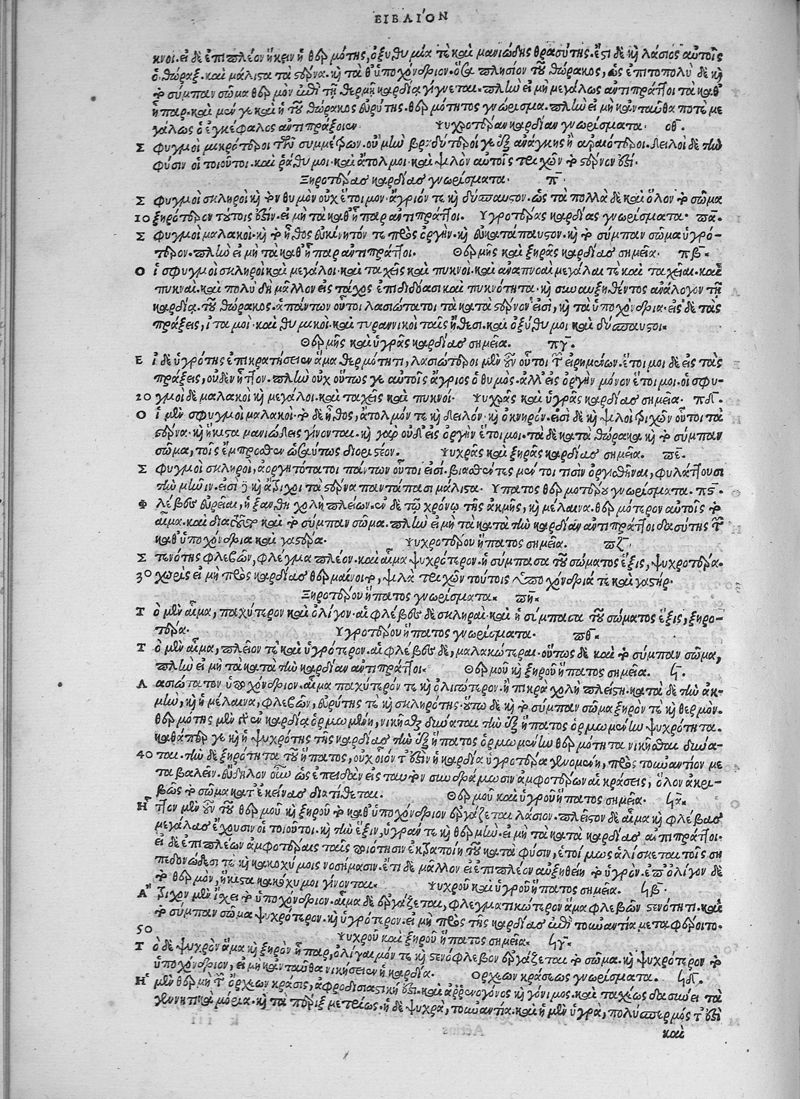 ΒΙΒΛΙΟΝ
κνοι. εἰ δὲ ἐπιπλέον ἥκειν ἡ θερμότης, ὀξυθυμία τε καὶ μανιώδης θρασύτης. ἔστι δὲ καὶ λάσιος αὐτοῖς
ὁ θώραξ. καὶ μάλιστα τὰ στέρνα. καὶ τὰ θ' ὑποχόνδριον. ὅσα πλησίον τοῦ θώρακος, ὡς ἐπιτοπολὺ δὲ καὶ
τὸ σύμπαν σῶμα θερμὸν ἐπὶ τῇ θερμῇ καρδίᾳ γίγνεται. πλὴν εἰ μὴ μεγάλως ἀντιπράττοι τὰ καθ'
ἧπαρ. καὶ μέν γε καὶ ἡ τοῦ θώρακος εὐρύτης. θερμότητος γνώρισμα. πλὴν εἰ μὴ κἀνταῦθά ποτε με
γάλως ὁ ἐγκέφαλος ἀντιπράξοιεν. Ψυχροτέραν καρδίαν γνωρίσματα. οθ.
Σ φυγμοὶ μικρότεροι τῶν συμμέτρων. οὐ μὴν βραδύτεροί γε ἐξ ἀνάγκης ἢ ἀραιότεροι. δειλοὶ δὲ τὴν
φύσιν οἱ τοιοῦτοι. καὶ ῥάθυμοι. καὶ ἄτολμοι. καὶ ψιλὸν αὐτοῖς τριχῶν τὸ στέρνον ἐστί.
Ξηροτέρας καρδίας γνωρίσματα. π.
Σ φυγμοὶ σκληροὶ καὶ τὸν θυμὸν οὐχ ἕτοιμον. ἄγριόν τε καὶ δύσπαυστον. ὡς τὰ πολλὰ δὲ καὶ ὅλον τὸ σῶμα
10 ξηρότερον τούτοις ἐστίν. εἰ μὴ τὰ καθ' ἧπαρ ἀντιπράττοι. Ὑγροτέρας καρδίας γνωρίσματα. πα.
Σ φυγμοὶ μαλακοί. καὶ τὸ ἦθος εὐκίνητόν τε πρὸς ὀργήν. καὶ εὐκατάπαυστον. καὶ τὸ σύμπαν σῶμα ὑγρό-
τερον. πλὴν εἰ μὴ τὰ καθ' ἧπαρ ἀντιπράττοι. Θερμῆς καὶ ξηρᾶς καρδίας σημεῖα. πβ.
Ο ἱ σφυγμοὶ σκληροὶ καὶ μεγάλοι. καὶ ταχεῖς καὶ πυκνοί. καὶ ἀναπνοαὶ μεγάλαι τε καὶ ταχεῖαι. καὶ
πυκναί. καὶ πολὺ δὴ μᾶλλον εἰς τάχος ἐπιδιδοῦσι καὶ πυκνότητα. καὶ συναυξηθέντος ἀνάλογον τῇ
καρδίᾳ. τοῦ θώρακος. ἁπάντων οὗτοι λασιώτατοι τὰ κατὰ στέρνον εἰσί, καὶ τὰ ὑποχόνδρια. εἰς δὲ τὰς
πράξεις, ἕτοιμοι. καὶ θυμικοί. καὶ τυραννικοὶ ταῖς ἤθεσι. καὶ ὀξύθυμοι καὶ δύσπαυστοι.
Θερμῆς καὶ ὑγρᾶς καρδίας σημεῖα. πγ.
Ε ἰ δὲ ὑγρότης ἐπικρατήσειεν ἅμα θερμότητι, λασιώτεροι μὲν οὖν οὗτοι τῶν εἰρημένων. ἕτοιμοι δὲ εἰς τὰς
πράξεις, οὐδὲν ἧττον. πλὴν οὐχ οὕτως γε αὐτοῖς ἄγριος ὁ θυμός. ἀλλ' εἰς ὀργὴν μόνον ἕτοιμοι. οἱ σφυ-
20 γμοὶ δὲ μαλακοὶ καὶ μεγάλοι. καὶ ταχεῖς καὶ πυκνοί. Ψυχρᾶς καὶ ὑγρᾶς καρδίας σημεῖα. πδ.
Ο ἱ μὲν σφυγμοὶ μαλακοί. τὸ δὲ ἦθος, ἄτολμόν τε καὶ δειλόν. καὶ ὀκνηρόν. εἰσὶ δὲ καὶ ψιλοὶ τριχῶν οὗτοι τὰ
στέρνα. καὶ ἥκιστα μανιώδεις γίνονται. καὶ γὰρ οὐδ' εἰς ὀργὴν ἕτοιμοι. τὰ δὲ κατὰ θώρακα καὶ τὸ σύμπαν
σῶμα, τοῖς ἔμπροσθεν ὡσαύτως διοριστέον. Ψυχρᾶς καὶ ξηρᾶς καρδίας σημεῖα. πε.
Σ φυγμοὶ σκληροί, ἀοργητότατοι πάντων οὗτοί εἰσι. βιασθέντες μέντοι τισὶν ὀργισθῆναι, φυλάττουσι
τὴν μῆνιν. εἰσὶ δὲ καὶ ἄτριχοι τὰ στέρνα παντάπασι μάλιστα. Ὕπατος θερμοτέρου γνωρίσματα. πς.
Φ λέβες εὐρεῖαι, ἡ ξανθὴ χολὴ πλείων. ἐν δὲ τῷ χρόνῳ τῆς ἀκμῆς, καὶ μέλαινα. θερμότερον αὐτοῖς τὸ
αἷμα. καὶ διὰ τοῦτο καὶ τὸ σύμπαν σῶμα. πλὴν εἰ μὴ τὰ κατὰ τὴν καρδίαν ἀντιπράττοι δασύτης τῶν
καθ' ὑποχόνδρια καὶ γαστέρα. Ψυχροτέρου ἥπατος σημεῖα. πζ.
Σ τενότης φλεβῶν, φλέγμα πλέον. καὶ αἷμα ψυχρότερον. ἡ σύμπασα τοῦ σώματος ἕξις, ψυχροτέρα.
30 χωρὶς εἰ μὴ πρὸς καρδίας θερμαίνοιτο, ψιλὰ τριχῶν τούτοις ὑποχόνδριά τε καὶ γαστήρ.
Ξηροτέρου ἥπατος γνωρίσματα. πη.
Τ ὸ μὲν αἷμα, παχύτερον καὶ ὀλίγον. αἱ φλέβες δὲ σκληραί. καὶ ἡ σύμπασα τοῦ σώματος ἕξις, ξηρο-
τέρα. Ὑγροτέρου ἥπατος γνωρίσματα. πθ.
Τ ὸ μὲν αἷμα, πλεῖον τε καὶ ὑγρότερον. αἱ φλέβες δὲ, μαλακώτεραι. οὕτως δὲ καὶ τὸ σύμπαν σῶμα,
πλὴν εἰ μὴ τὰ κατὰ τὴν καρδίαν ἀντιπράττοι. Θερμοῦ καὶ ξηροῦ ἥπατος σημεῖα. ϟ.
Λ ασιώτατον ὑποχόνδριον. αἷμα παχύτερόν τε καὶ ὀλιγώτερον. ἡ πικρὰ χολὴ πλείστη. κατὰ δὲ τὴν ἀκ-
μήν, καὶ ἡ μέλαινα, φλεβῶν, εὐρύτης τε καὶ σκληρότης. οὕτω δὲ καὶ τὸ σύμπαν σῶμα ξηρόν τε καὶ θερμόν.
θερμότης μὲν ἐκ καρδίας ὁρμωμένη, νικῆσαι δύναται τὴν ἐξ ἥπατος ὁρμωμένην ψυχρότητα.
καθάπερ γε καὶ ἡ ψυχρότης τῆς καρδίας τὴν ἐξ ἥπατος ὁρμωμένην θερμότητα νικῆσαι δύνα-
40 ται. τὴν δὲ ξηρότητα τοῦ ἥπατος, οὐχ οἷόν τ' ἐστὶν ἡ καρδία ὑγροτέρα γινομένη, πρὸς τοὐναντίον με
ταβαλεῖν. εὔδηλον οὖν ὡς ἐπειδὰν εἰς ταυτὸν συνδράμωσιν ἀμφοτέρων αἱ κράσεις, ὅλον ἀκρι-
βῶς τὸ σῶμα κατ' ἐκείνας διατίθεται. Θερμοῦ καὶ ὑγροῦ ἥπατος σημεῖα. ϟα.
Η ττον μὲν οὖν τοῦ θερμοῦ καὶ ξηροῦ τὸ καθ' ὑποχόνδριον ἐργάζεται λάσιον. πλεῖστον δὲ αἷμα καὶ φλέβας
μεγάλας ἔχουσιν οἱ τοιοῦτοι. καὶ τὴν ἕξιν, ὑγράν τε καὶ θερμήν. εἰ μὴ τὰ κατὰ καρδίας ἀντιπράττοι.
εἰ δὲ ἐπιπλέων ἀμφοτέραις ταῖς ποιότησιν ἐκτράποιτο τοῦ κατὰ φύσιν, ἑτοίμως ἁλίσκεται τοῖς ση
πεδονώδεσί τε καὶ κακοχύμοις νοσήμασιν. ἔτι δὲ μᾶλλον εἰ ἐπιπλέον αὐξηθείη τὸ ὑγρόν. ἐπ' ὀλίγον δὲ
τὸ θερμὸν, ἥκιστα κακόχυμοι γίνονται. Ψυχροῦ καὶ ὑγροῦ ἥπατος σημεῖα. ϟβ.
Α τριχον μὲν ἔχει τὸ ὑποχόνδριον. αἷμα δὲ ἐργάζεται, φλεγματικώτερον ἅμα φλεβῶν στενότητι. καὶ
τὸ σύμπαν σῶμα ψυχρότερον. καὶ ὑγρότερον. εἰ μὴ πρὸς τῆς καρδίας ἐπὶ τοὐναντία μεταφέροιτο.
50 Ψυχροῦ καὶ ξηροῦ ἥπατος σημεῖα. ϟγ.
Τ ὸ δὲ ψυχρὸν ἅμα καὶ ξηρὸν ἧπαρ, ὀλίγαιμόν τε καὶ στενόφλεβον ἐργάζεται τὸ σῶμα. καὶ ψυχρότερον τὸ
ὑποχόνδριον, εἰ μὴ κἀνταῦθα νικήσειεν ἡ καρδία. Ὄρχεων κράσεως γνωρίσματα. ϟδ.
Η μὲν θερμὴ τῶν ὄρχεων κρᾶσις, ἀφροδισιαστική ἐστι. καὶ ἀρρενογόνος καὶ γόνιμος. καὶ ταχέως δασύνει τὰ
γεννητικὰ μόρια. καὶ τὰ πέριξ μετρίως. ἡ δὲ ψυχρὰ, τοὐναντία. καὶ ἡ μὲν ὑγρὰ, πολύσπερμός τ' ἐστὶ
καὶ